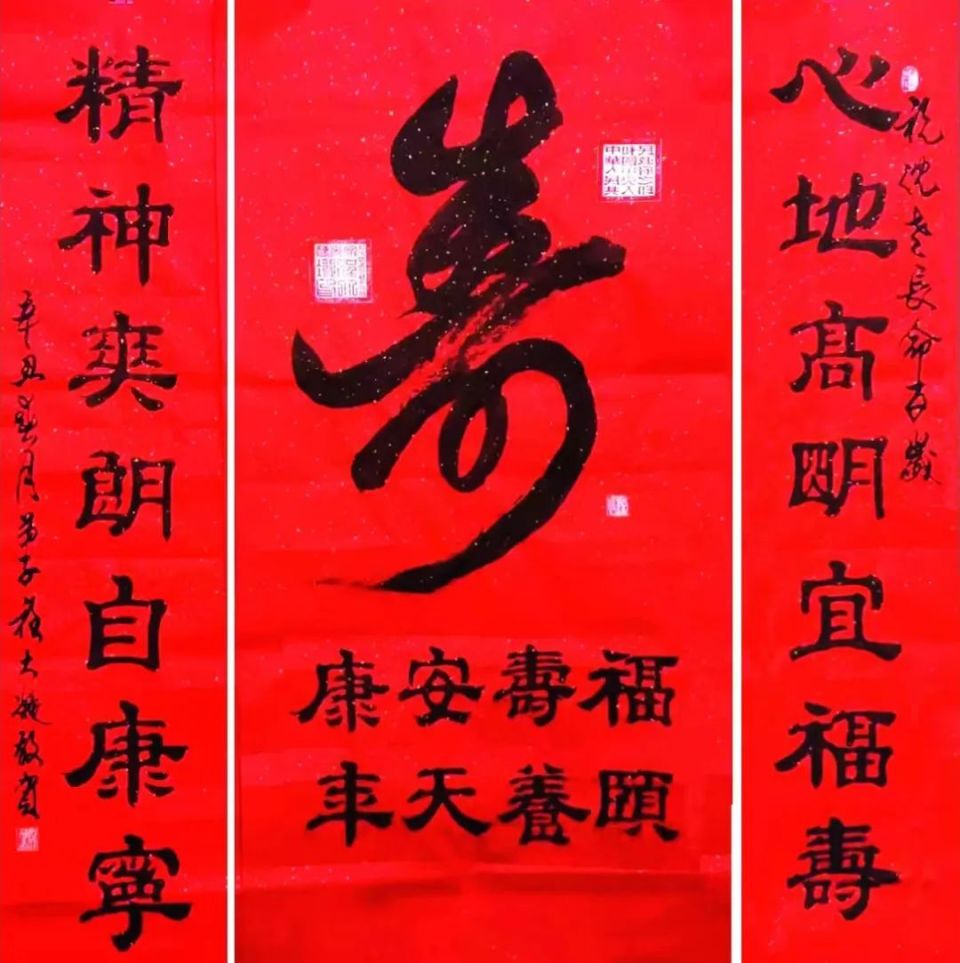 祝沈老長命百歲
心地髙明宜福壽
壽
福壽安康
頤養天年
精神爽朗自康寧
辛丑月弟子大敬賀